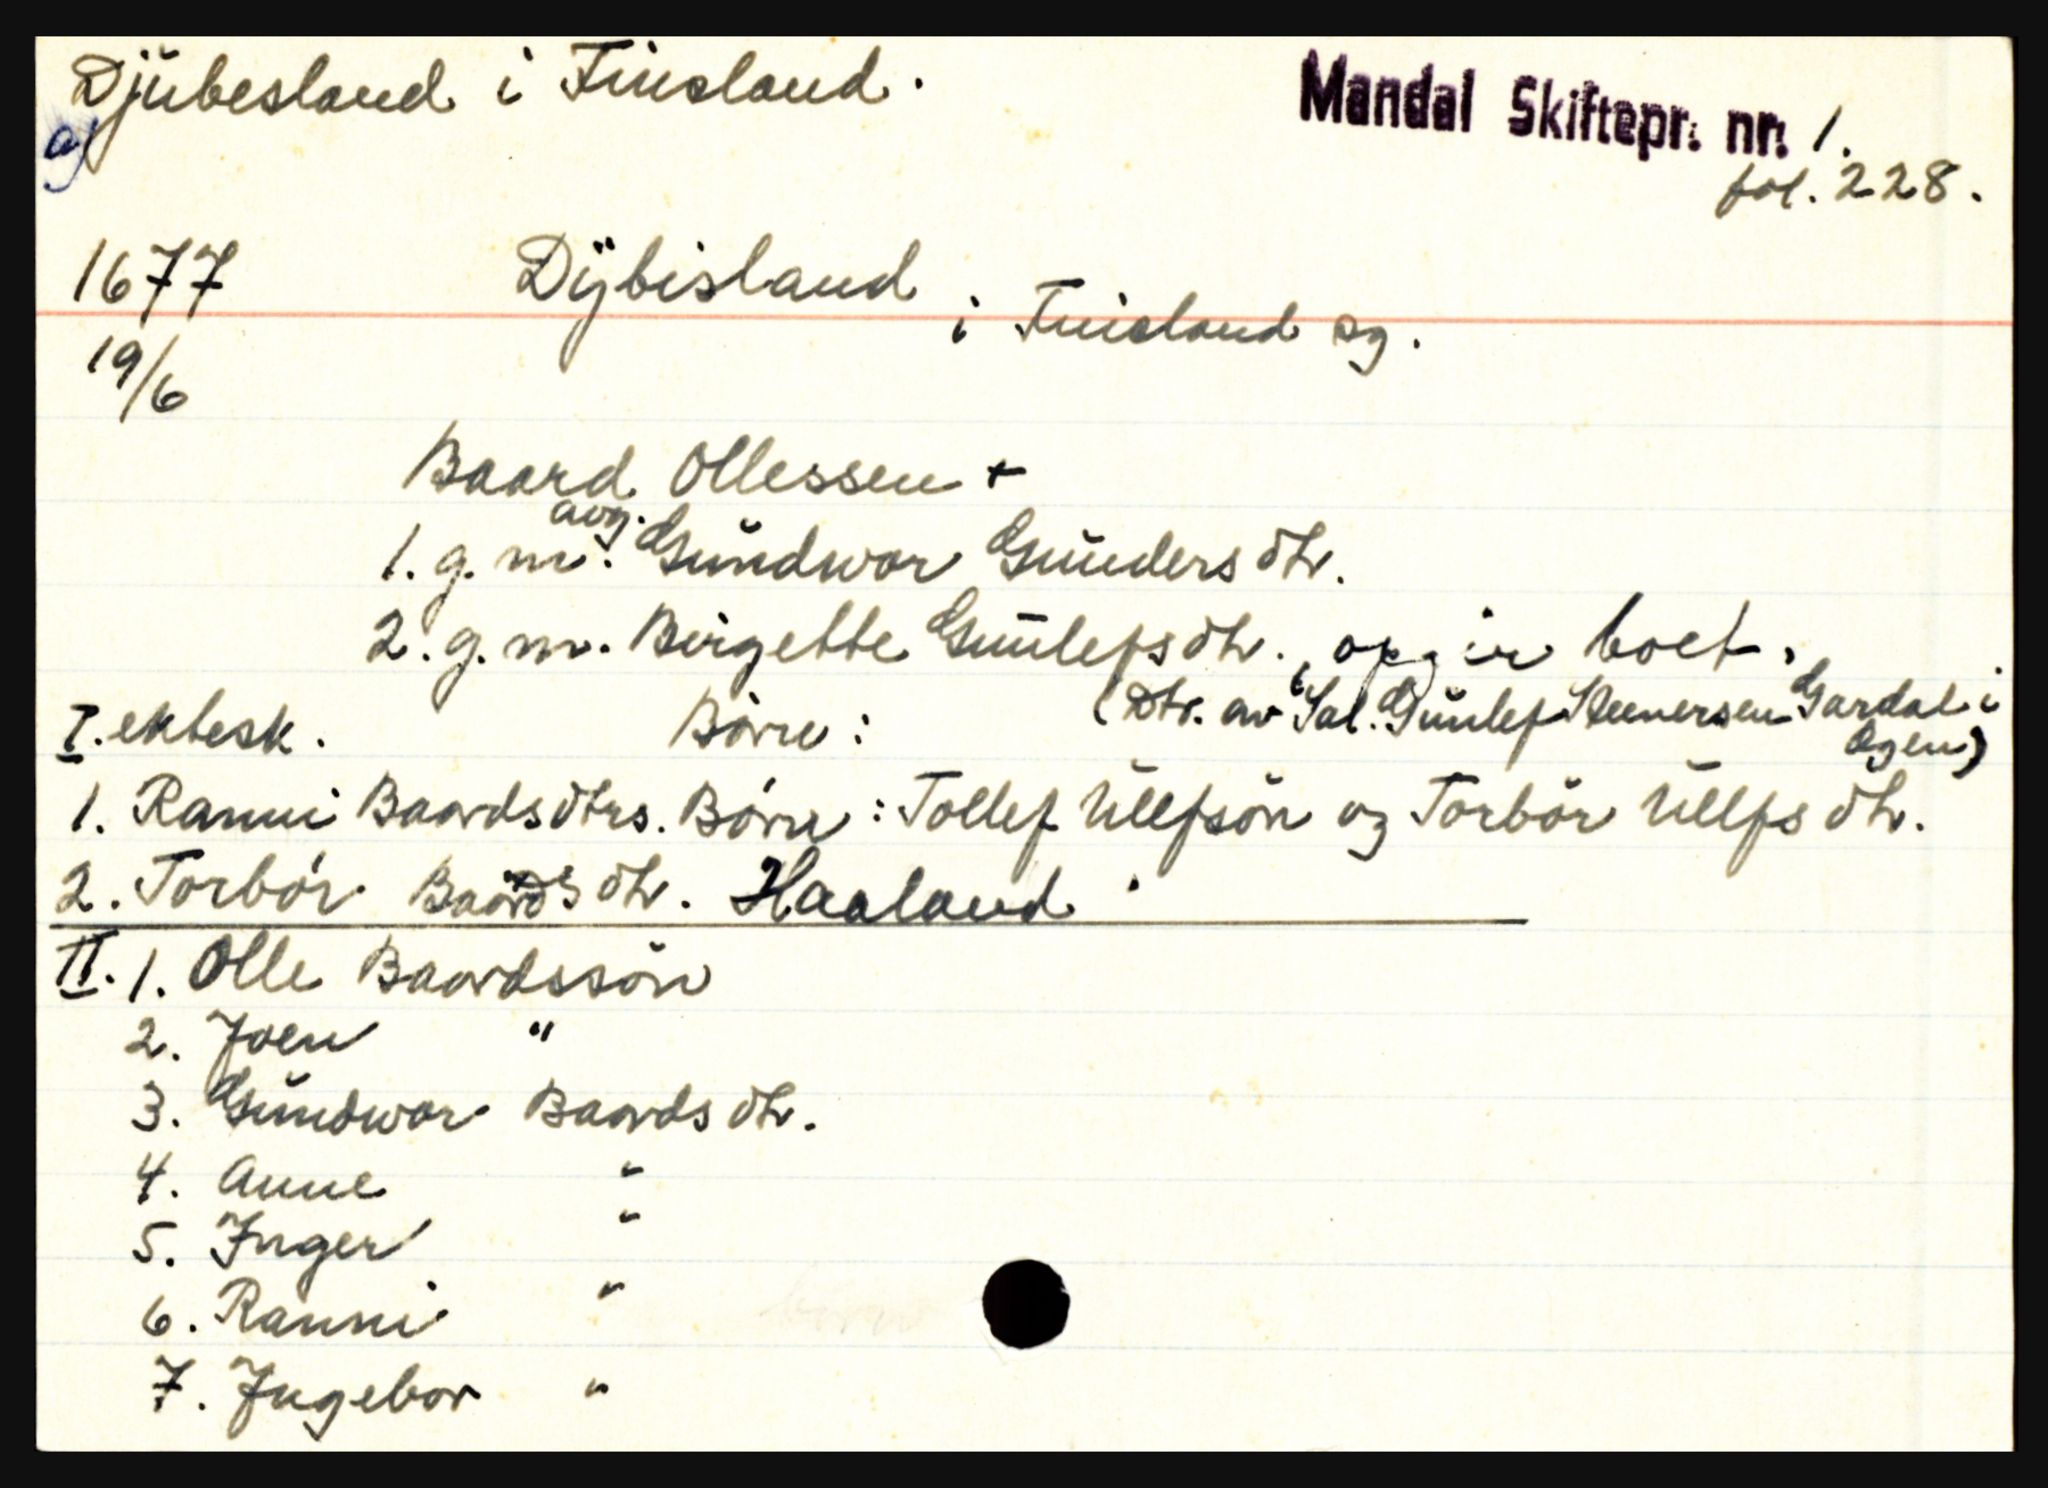 Djubesland i Finsland.
a)
Mandal Skiftepr. nr. 1.
fol. 228.
1677
Dÿbisland
i Finsland sg.
19/6
Baard Ollessen +
avg.
1. g. m. Gŭndwor Gŭnders dtr.
2. g. m. Birgette Gŭnlefs dtr., opgir boet.
(Dtr. av Sal. Gŭnlef Steenersen Gardal i
Øgen)
I. ektesk. Börn:
1. Ranni Baards dtrs. Börn: Tollef Ŭllfsön og Torbör Ŭllfs dtr.
2. Torbör Baards dtr. Haaland
II. 1. Olle Baardssön
2. Joen "
3. Gŭndwor Baards dtr.
4. Anne "
5. Inger "
6. Ranni "
7. Ingebor "